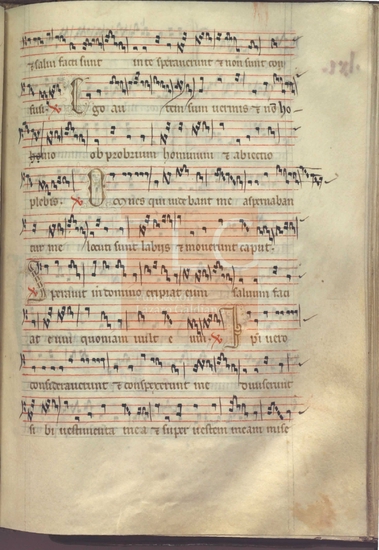 & salvi facti sunt in te speraverunt & non sunt con
fusi. Ego autem sum vermis & nō ho
homo obprobrium hominum & abiectio
plebis. Omnes qui videbant me aspernaban
tur me locuti sunt labijs & moverunt caput.
Speravit in domino eripiat eum salvum faci
at eum quoniam vult eum. Ipsi vero
consideraverunt & conspexerunt me diviserunt
sibi vestimenta mea & super vestem meam mise